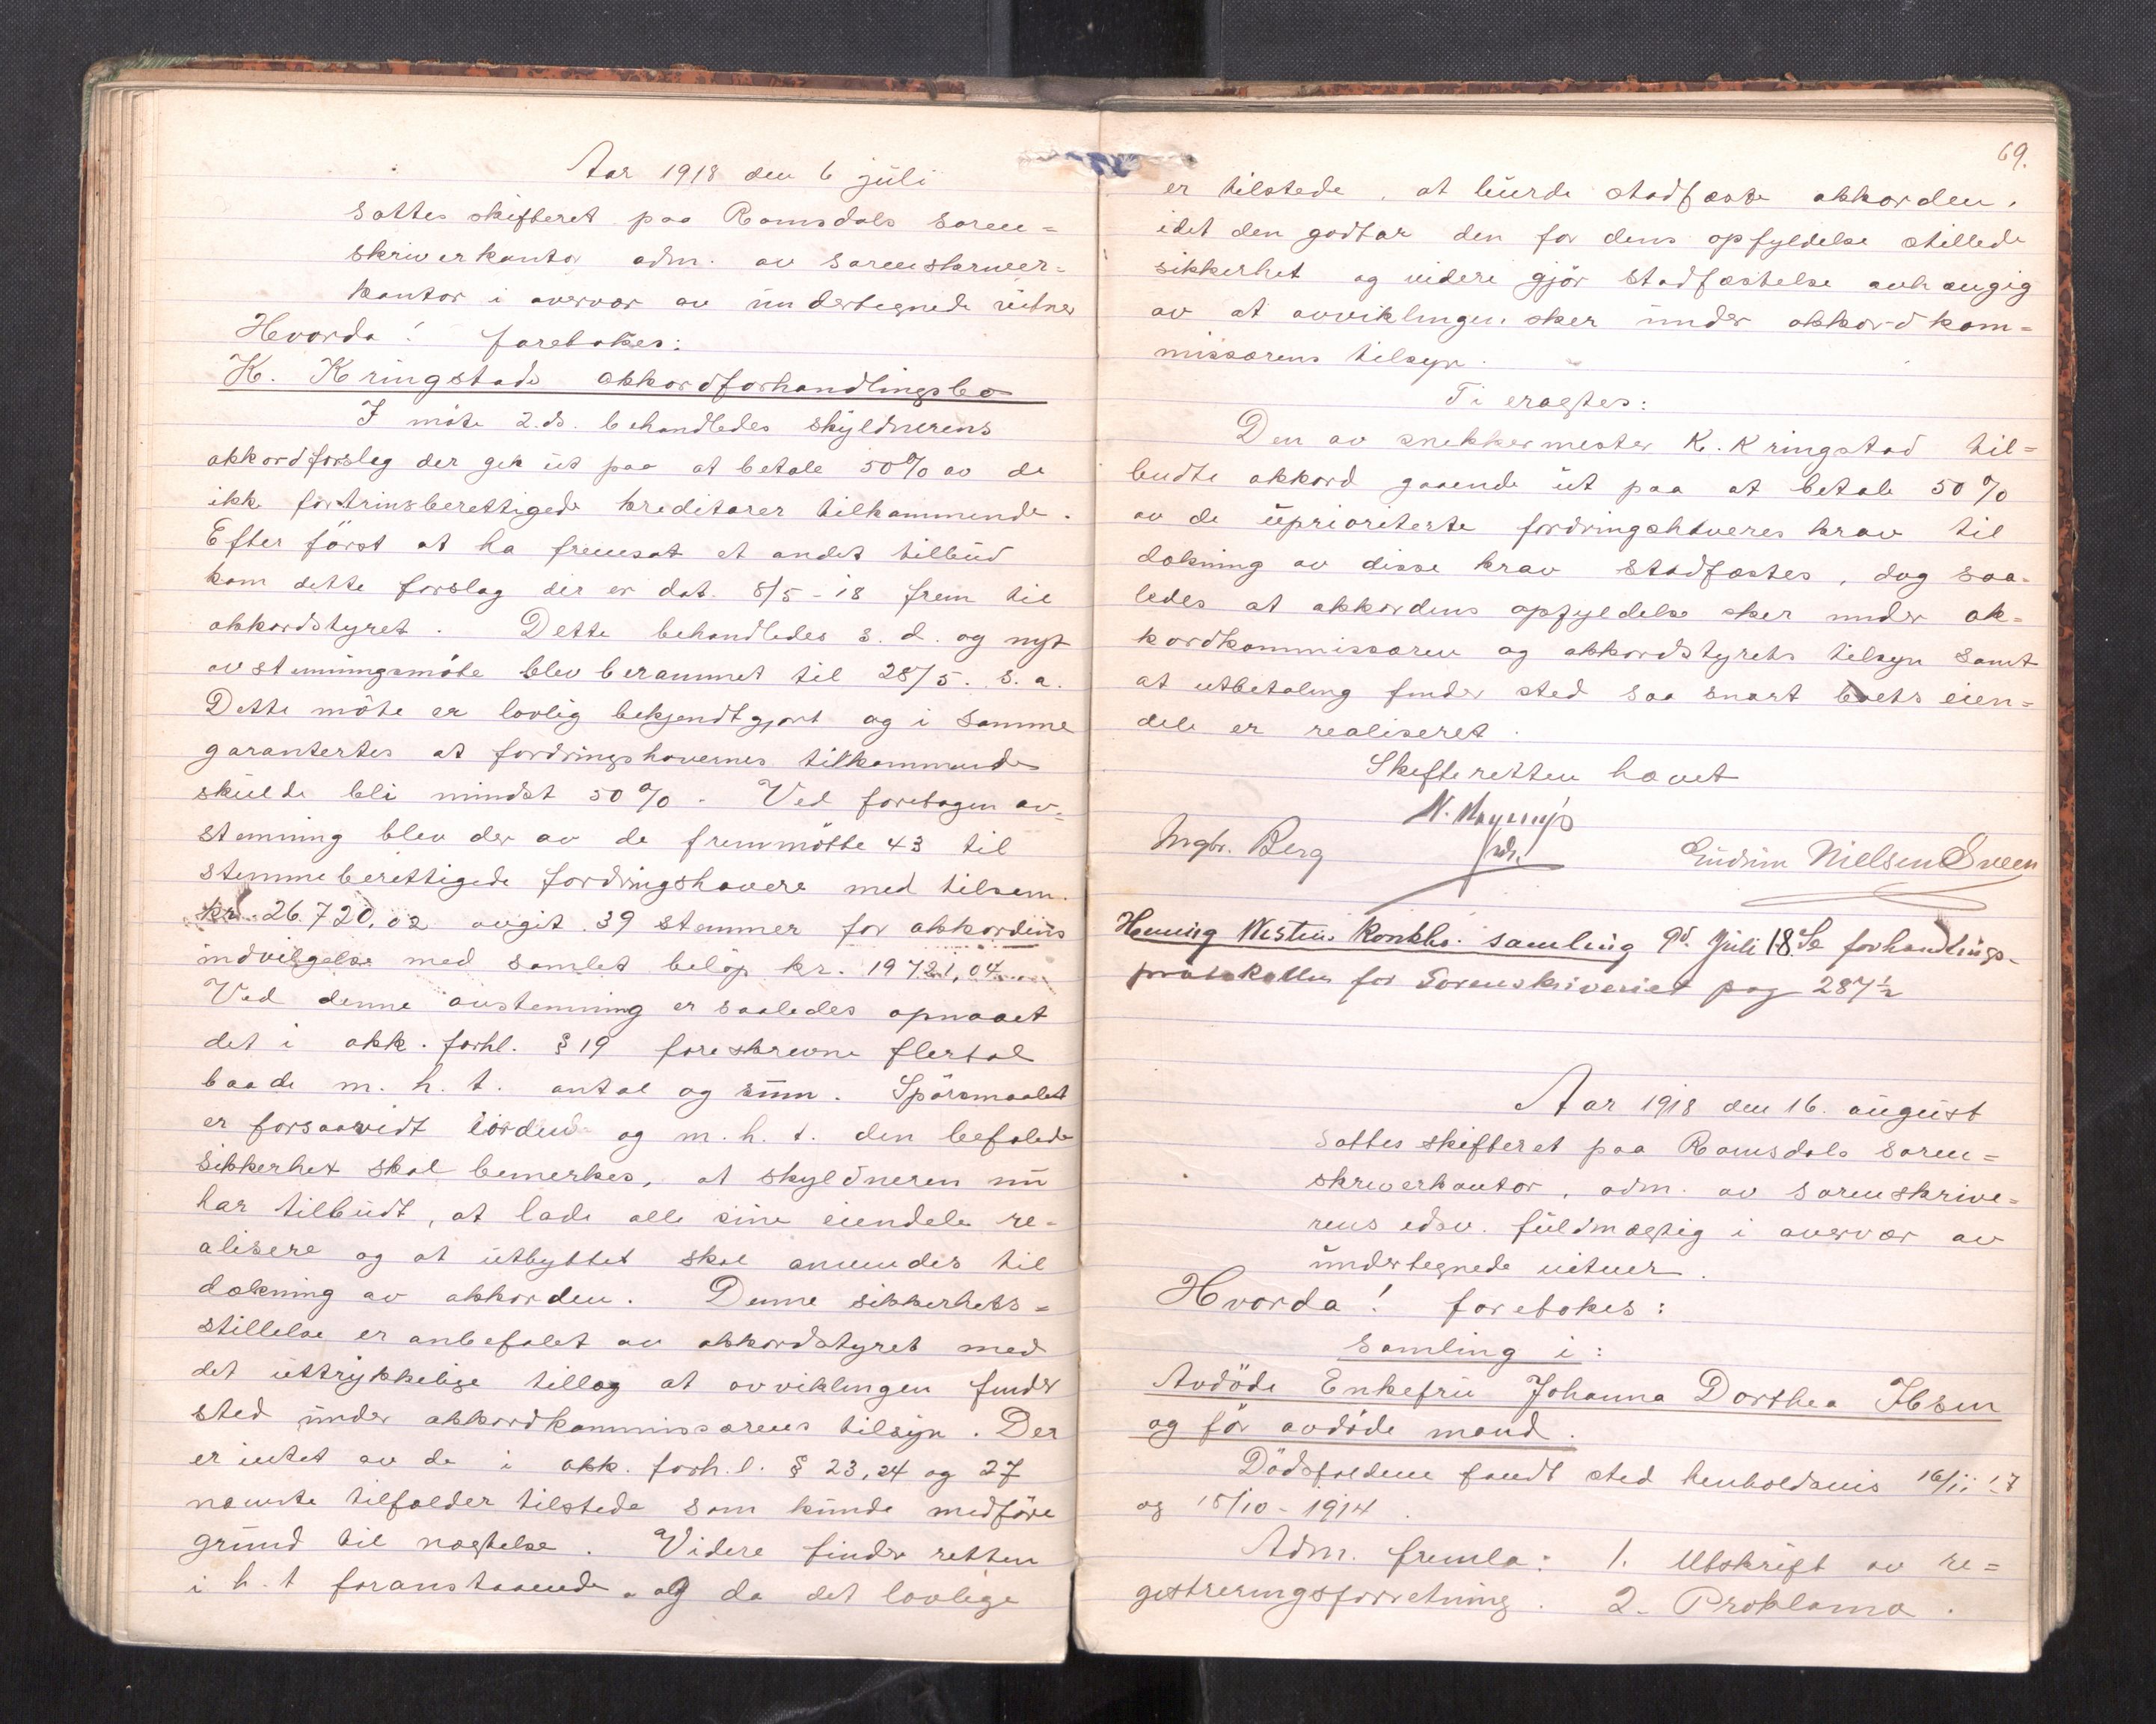 Aar 1918 den 6 juli
sattes skifteret paa Romsdals soren=
skriverkontor adm. av sorenskriver=
kontor i overvær av undertegnede vitner
Hvorda! foretokes:
K. Kringstads akkordforhandlingsbo
I möte 2. ds. behandledes skyldnerens
akkordforslag der gik ut paa at betale 50% av de
ikke fortrinsberettigede kreditorer tilkommende.
Efter först at ha fremsat et andet tilbud
kom dette forslag der er dat. 8/5-18 frem til
akkordstyret. Dette behandledes s. d. og nyt
avstemningsmöte blev berammet til 28/5. s. a.
Dette möte er lovlig bekjendtgjort og i samme
garantertes at fordringshavernes tilkommende
skulde bli mindst 50%. Ved foretagen av=
stemning blev der av de fremmötte 43 til
stemmeberettigede fordringshavere med tilsam.
kr. 26.720,02 avgit 39 stemmer for akkordens
indvilgelse med samlet belöp kr. 19721,04
Ved denne avstemning er saaledes opnaaet
det i akk. forhl. § 19 foreskrevne flertal
baade m. h. t. antal og sum. Spörsmaalet
er forsaavidt iorden og m. h. t. den befalede
sikkerhet skal bemerkes, at skyldneren nu
har tilbudt, at lade alle sine eiendele re=
alisere og at utbyttet skal anvendes til
dækning av akkorden. Denne sikkerhets=
stillelse er anbefalet av akkordstyret med
det uttrykkelige tillæg at avviklingen finder
sted under akkordkommissærens tilsyn. Der
er intet av de i akk. forh. l. § 23, 24 og 27
nævnte tilfælder tilstede som kunde medföre
grund til nægtelse. Videre finder retten
i h. t foranstaaende og da det lovlige
69.
er tilstede, at burde stadfæste akkorden,
idet den godtar den for dens opfyldelse stillede
sikkerhet og videre gjör stadfæstelse avhængig
av at avviklingen sker under akkordkom=
missærens tilsyn.
Ti eragtes:
Den av snekkermester K. Kringstad til=
budte akkord gaaende ut paa at betale 50%
av de uprioriterte fordringshaveres krav til
dækning av disse krav stadfæstes, dog saa=
ledes at akkordens opfyldelse sker under ak=
kordkommissæren og akkordstyrets tilsyn samt
at utbetaling finder sted saa snart boets eien=
dele er realiseret.
Skifteretten hævet
Ingbr. Berg
Gudrun Nielsen Sveen
Henning Westins konkbo. samling 9d. Juli 18. Se forhandlings-
protokollen for Sorenskriveriet pag 287½
Aar 1918 den 16. august
sattes skifteret paa Romsdals soren=
skriverkontor, adm. av sorenskrive=
rens edsv. fuldmægtig i overvær av
undertegnede vitner.
Hvorda! foretokes:
Samling i:
Avdöde Enkefru Johanna Dorthea Ibsen
og för avdöde mand.
Dödsfaldene fandt sted henholdsvis 16/11 17
og 15/10-1914.
Adm. fremla: 1. Utskrift av re=
gistreringsforretning. 2. Proklama.